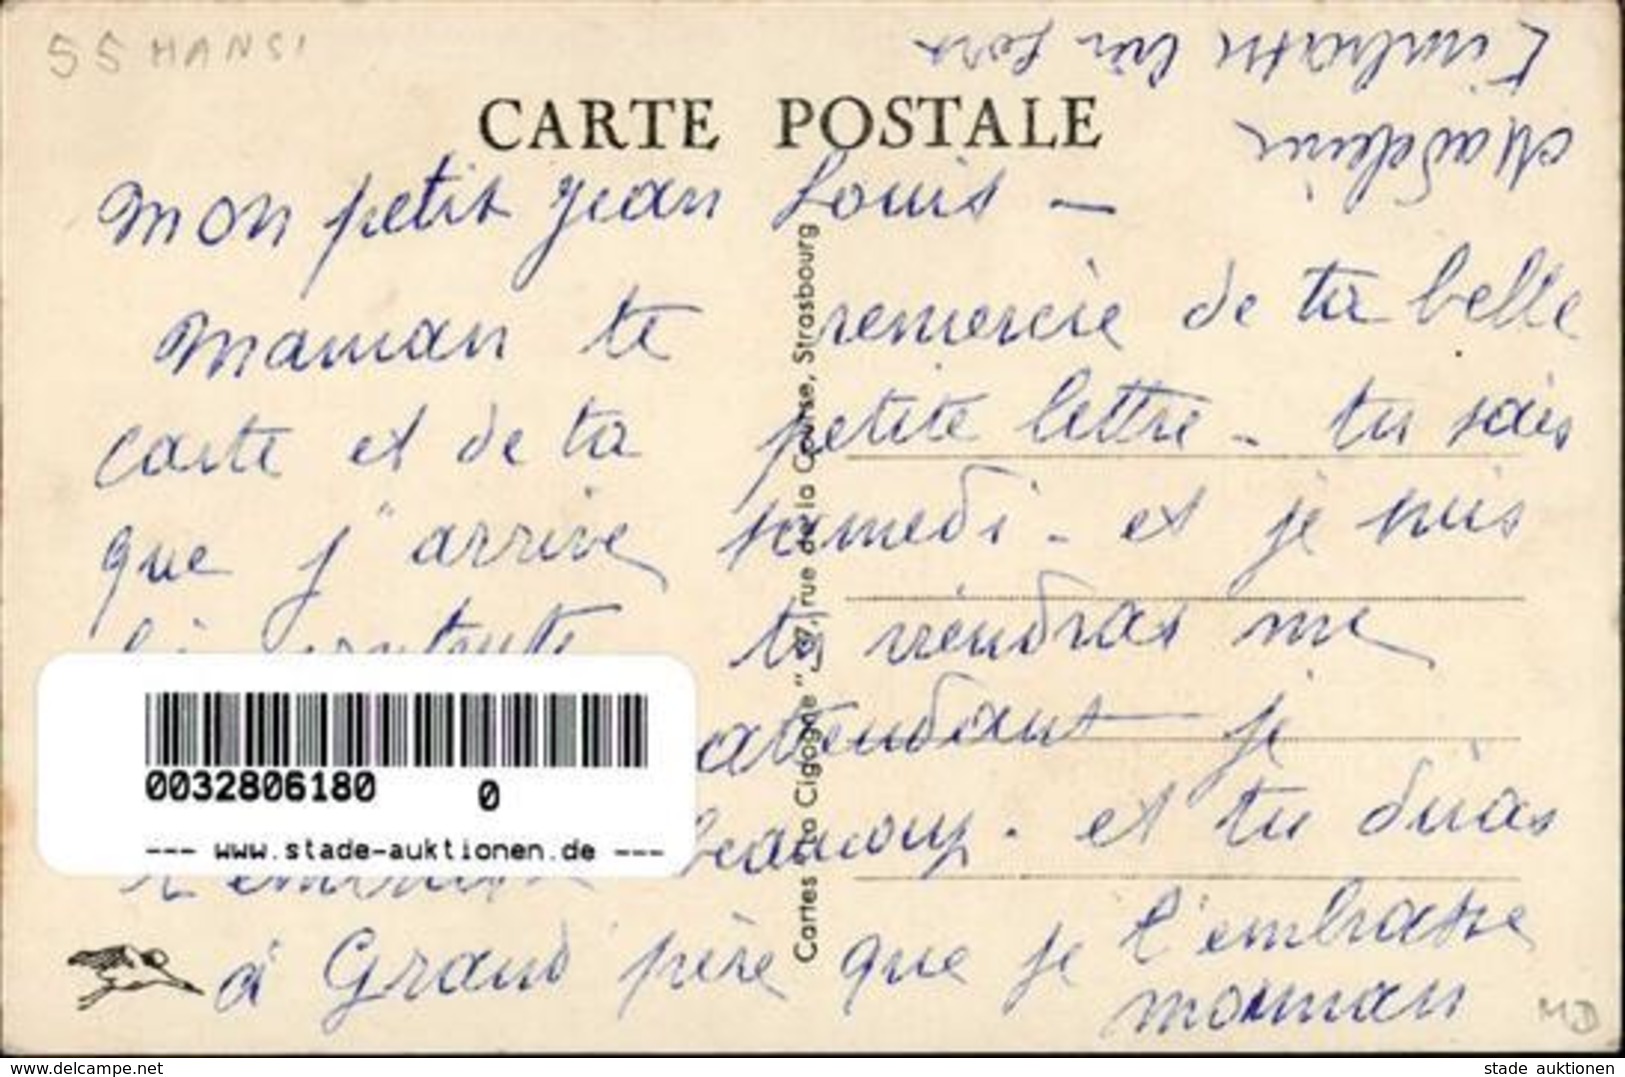 55 HANSI
CARTE POSTALE
t'embrasse bien fort
Madeleine
mon petit Jean Louis -
maman te remercie de ta belle
carte et de ta petite lettre - tu sais
que j'arrive samedi - et je suis
contente tu viendras me
attendant je
t'embrasse beaucoup - et tu diras
à Grand père que je l'embrasse
maman
Cartes "La Cigogne" 37, rue de la Course, Strasbourg
0032806180 0
--- www.stade-auktionen.de ---
MD
www.delcampe.net
stade auktionen